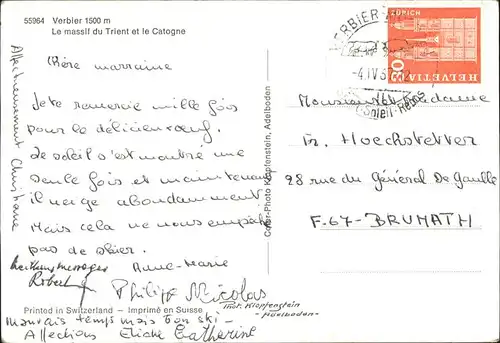 55964 Verbier 1500 m
Le massif du Trient et le Catogne
Chère marraine
Je te remercie mille fois
pour le délicieux œuf.
Le soleil s'est montré une
seule fois et maintenant
il neige abondamment
Mais cela ne nous empêche
pas de skier.
Anne-Marie
Robert
Philipp Nicolas
Affectueusement Christiane
Printed in Switzerland – Imprimé en Suisse
Phot. Klopfenstein
-Adelboden-
mauvais temps mais bon ski -
Affections Catherine
Color-Photo Klopfenstein, Adelboden
VERBIER
-4.IV.67
Soleil-Repos
ZÜRICH
HELVETIA
Monsieur et Madame
Fr. Hoechstetter
28 rue du Général De Gaulle
F.67-BRUMATH